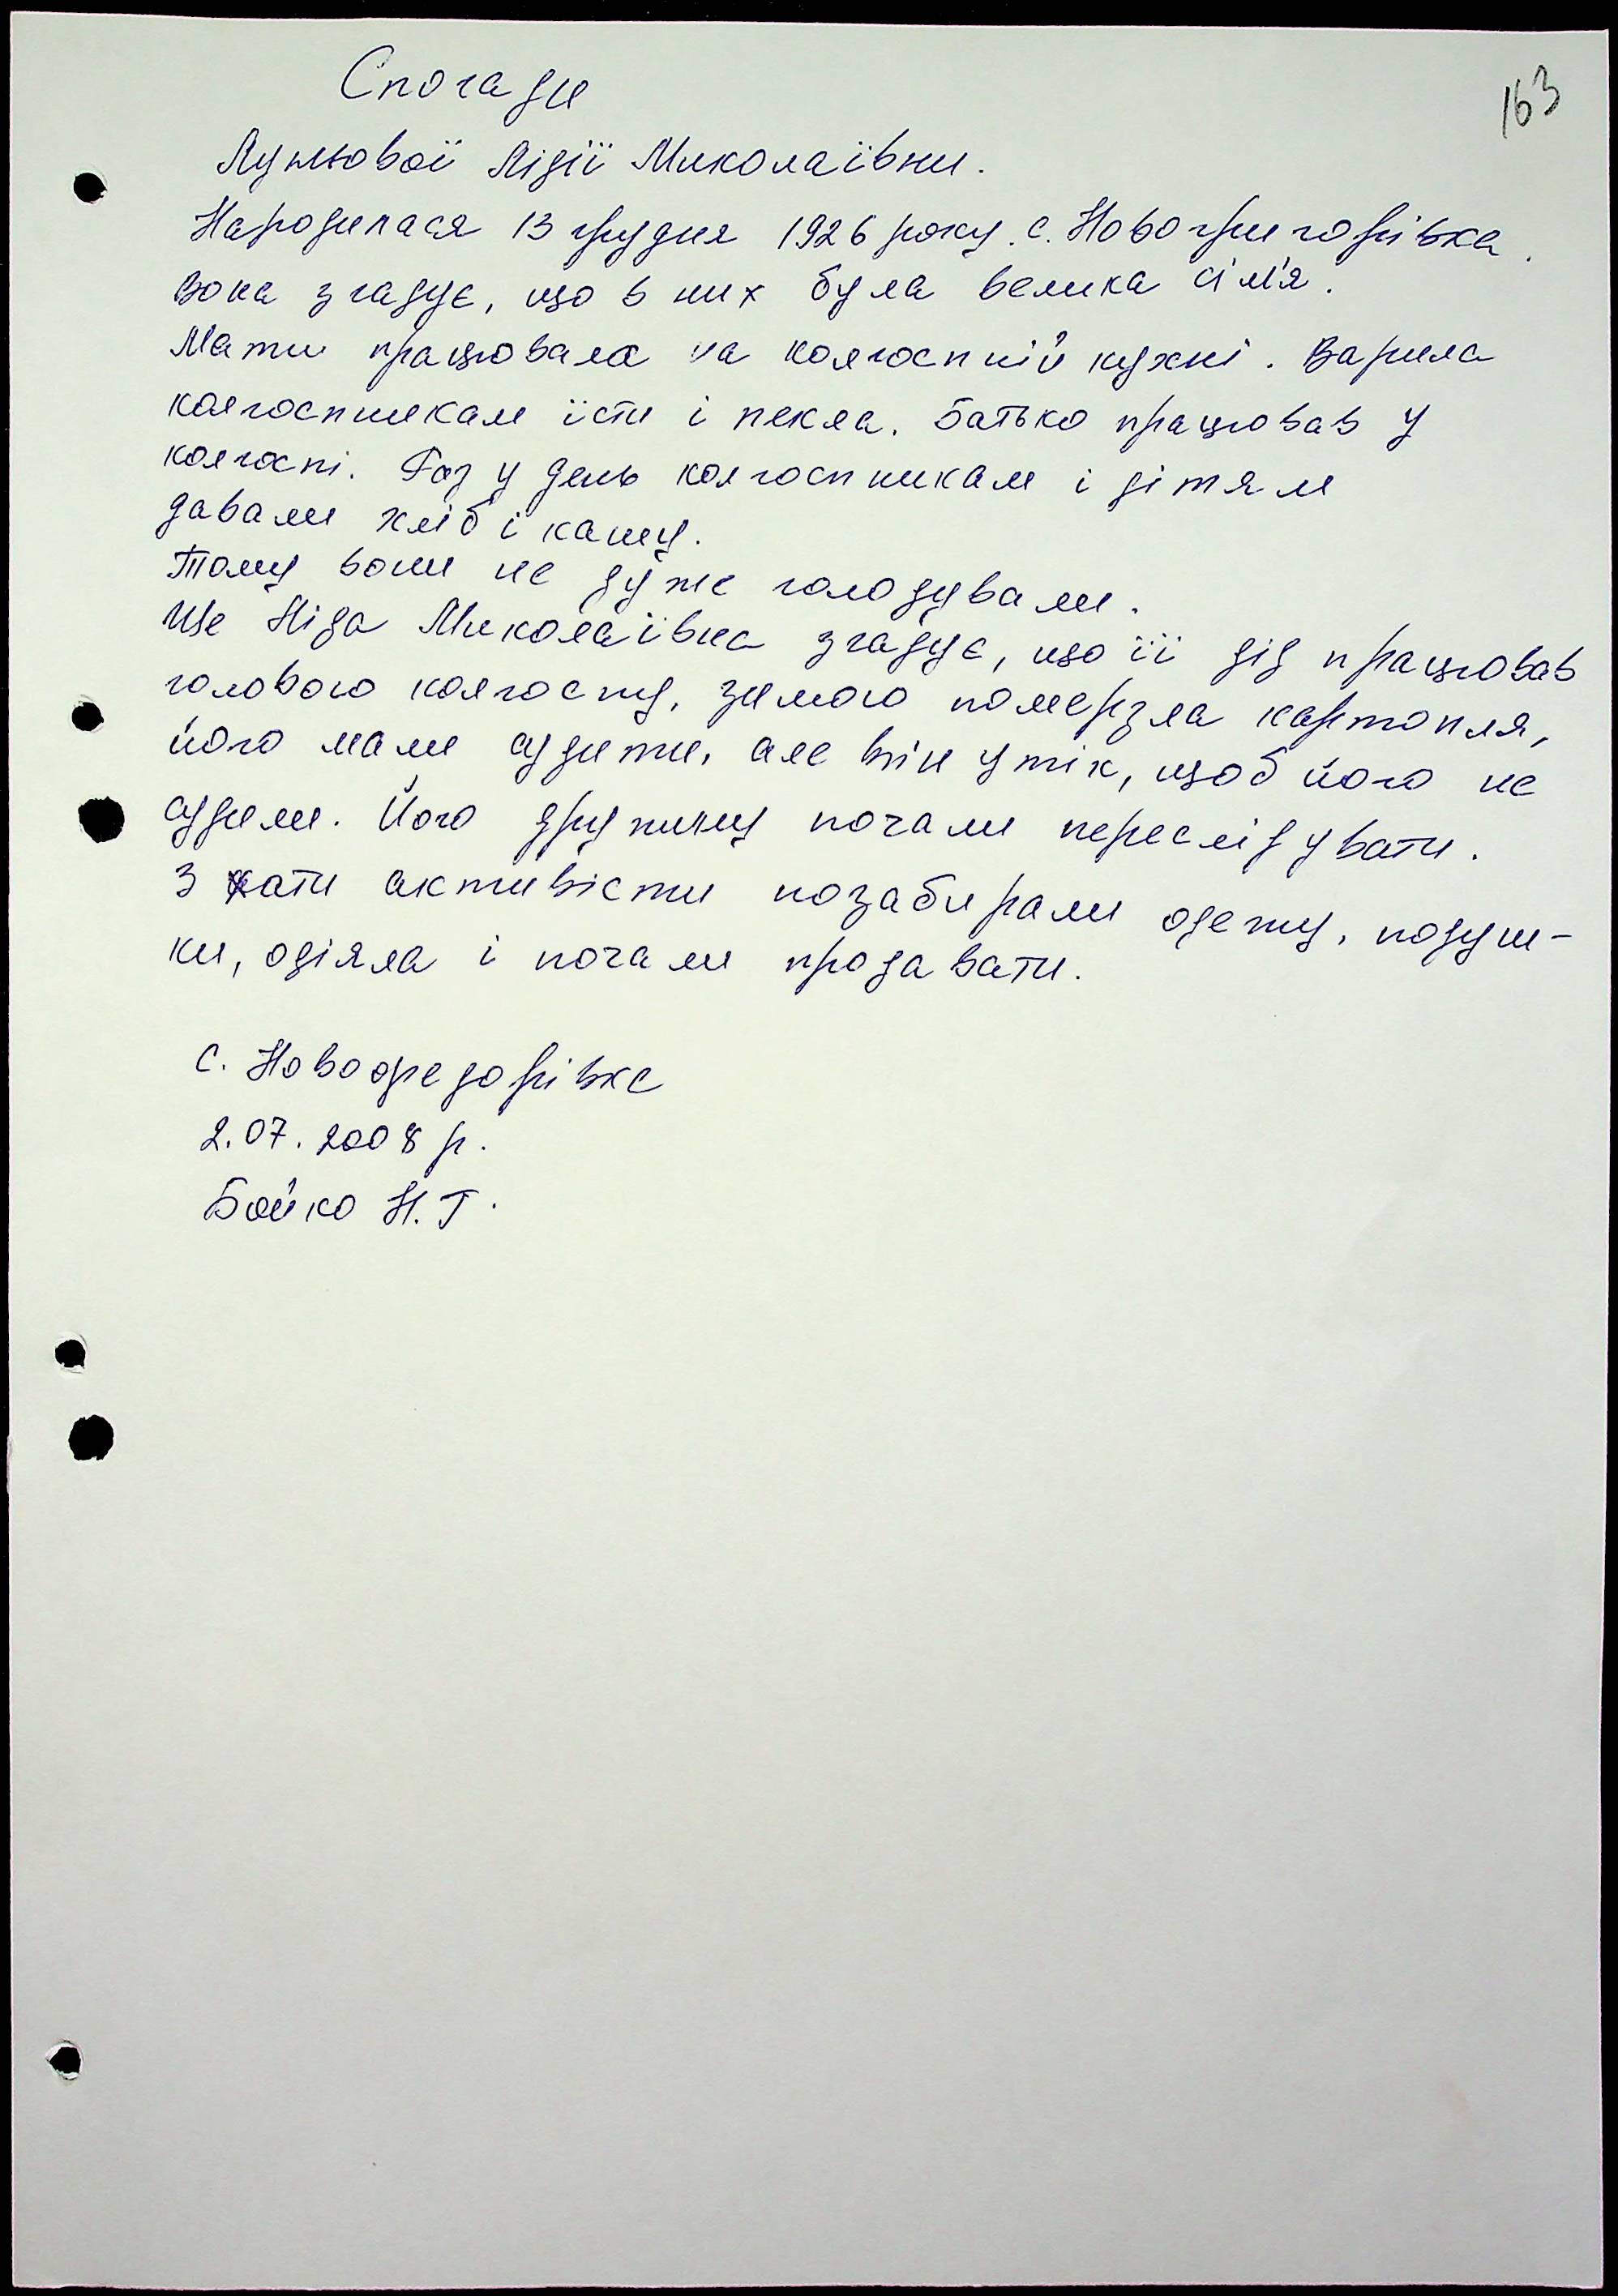 163
Спогади
Лужьової Лідії Миколаївни.
Народилася 13 грудня 1926 року. с. Новогригорівка.
Вона згадує, що в них була велика сім'я.
Мати працювала на колгоспній кухні. Варила
колгоспникам їсти і пекла. Батько працював у
колгоспі. Раз у день колгоспникам і дітям
давали хліб і кашу.
Тому вони не дуже голодували.
Ще Ліда Миколаївна згадує, що її дід працював
головою колгоспу, зимою померзла картопля,
його мали судити, але він утік, щоб його не
судили. Його дружину почали переслідувати.
З хати активісти позабирали одежу, подуш-
ки, одіяла і почали продавати.
с. Новофедорівка
2.07.2008 р.
Бойко Н.Г.